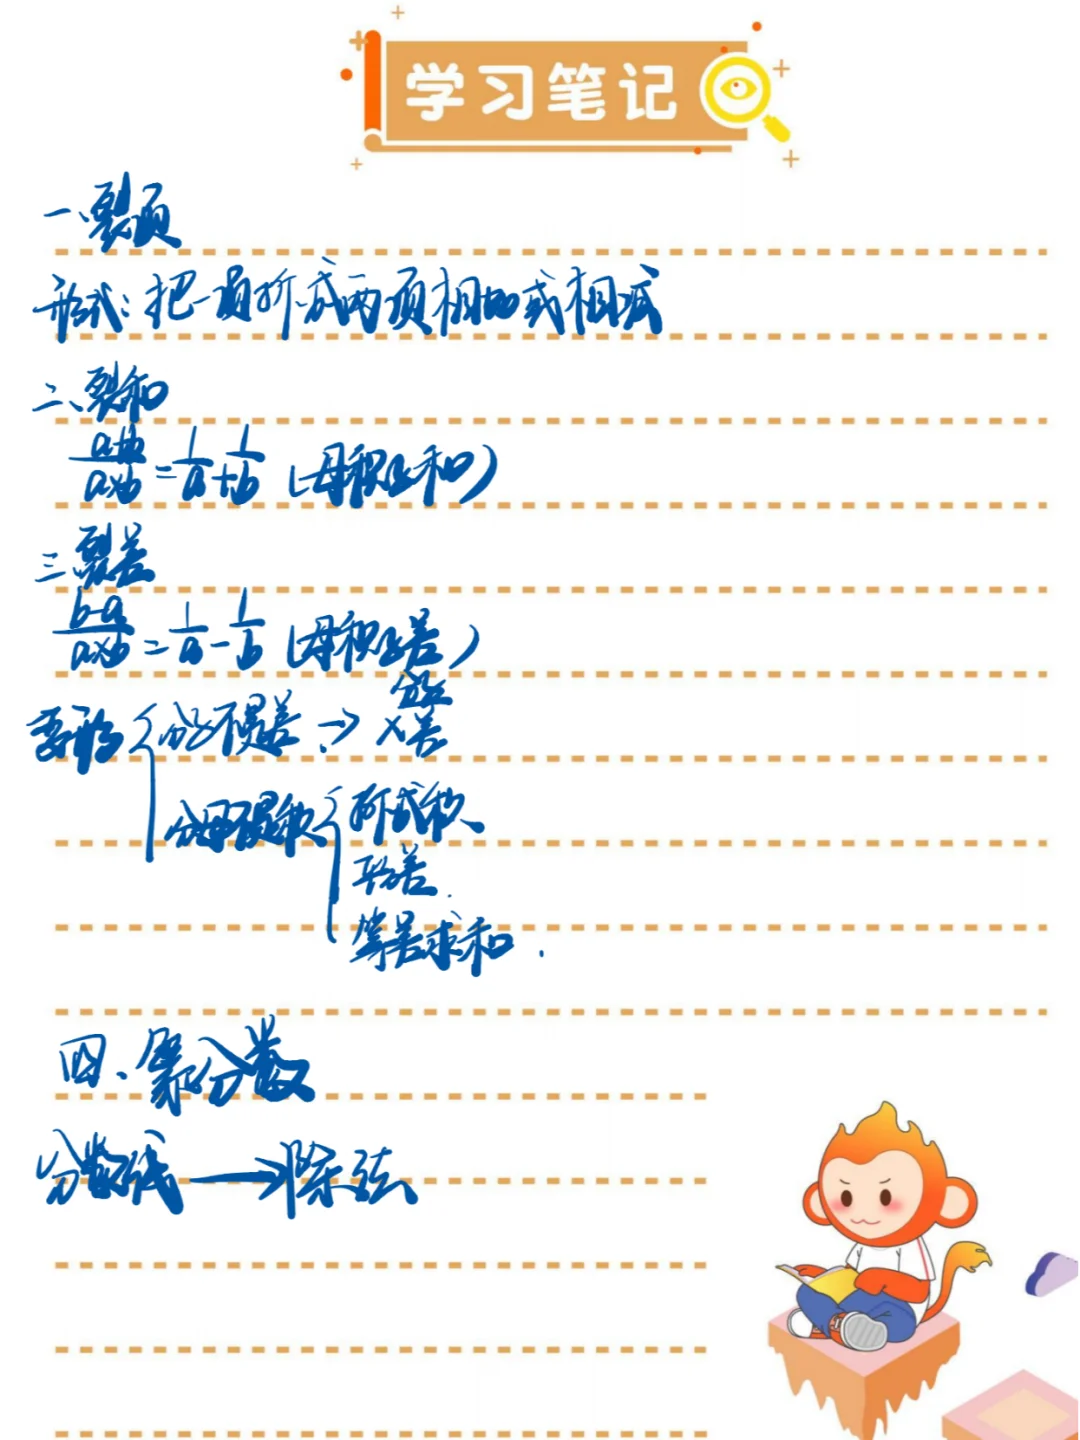 学习笔记
一、裂项
形式：把一项拆成两项相加或相减
二、裂和
a+b/a×b = 1/a + 1/b (母积子和)
三、裂差
b-a/a×b = 1/a - 1/b (母积子差)
变形 { 分子不是差 → × 分子/差
分母不是积 { 拆成积
平方差
等差求和.
四、繁分数
分数线 → 除法